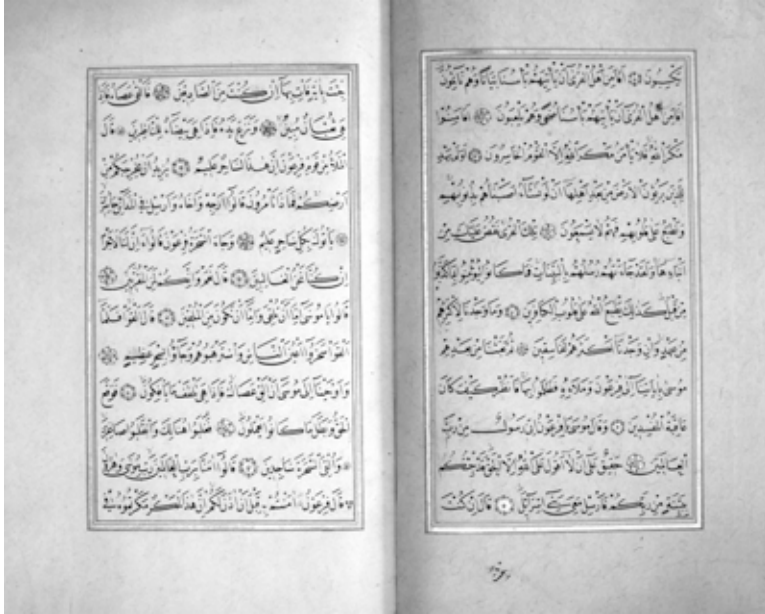 يكسبون افامن اهل القرى ان يأتيهم بأسنا بياتا وهم نائمون
اوامن اهل القرى ان يأتيهم بأسنا ضحى وهم يلعبون افامنوا
مكر الله فلا يأمن مكر الله الا القوم الخاسرون اولم يهد
للذين يرثون الارض من بعد اهلها ان لو نشاء اصبناهم بذنوبهم
ونطبع على قلوبهم فهم لا يسمعون تلك القرى نقص عليك من
انبائها ولقد جاءتهم رسلهم بالبينات فما كانوا ليؤمنوا بما كذبوا
من قبل كذلك يطبع الله على قلوب الكافرين وما وجدنا لاكثرهم
من عهد وان وجدنا اكثرهم لفاسقين ثم بعثنا من بعدهم
موسى باياتنا الى فرعون وملائه فظلموا بها فانظر كيف كان
عاقبة المفسدين وقال موسى يا فرعون انى رسول من رب
العالمين حقيق على ان لا اقول على الله الا الحق قد جئتكم
ببينة من ربكم فارسل معى بنى اسرائيل قال ان كنت
جئت باية فات بها ان كنت من الصادقين فالقى عصاه فاذا
هى ثعبان مبين ونزع يده فاذا هى بيضاء للناظرين قال
الملأ من قوم فرعون ان هذا لساحر عليم يريد ان يخرجكم من
ارضكم فماذا تأمرون قالوا ارجه واخاه وارسل فى المدائن حاشرين
يأتوك بكل ساحر عليم وجاء السحرة فرعون قالوا ان لنا لاجرا
ان كنا نحن الغالبين قال نعم وانكم لمن المقربين
قالوا يا موسى اما ان تلقى واما ان نكون نحن الملقين قال القوا فلما
القوا سحروا اعين الناس واسترهبوهم وجاؤا بسحر عظيم
واوحينا الى موسى ان الق عصاك فاذا هى تلقف ما يأفكون فوقع
الحق وبطل ما كانوا يعملون فغلبوا هنالك وانقلبوا صاغرين
والقى السحرة ساجدين قالوا امنا برب العالمين رب موسى وهرون
قال فرعون امنتم به قبل ان اذن لكم ان هذا لمكر مكرتموه فى